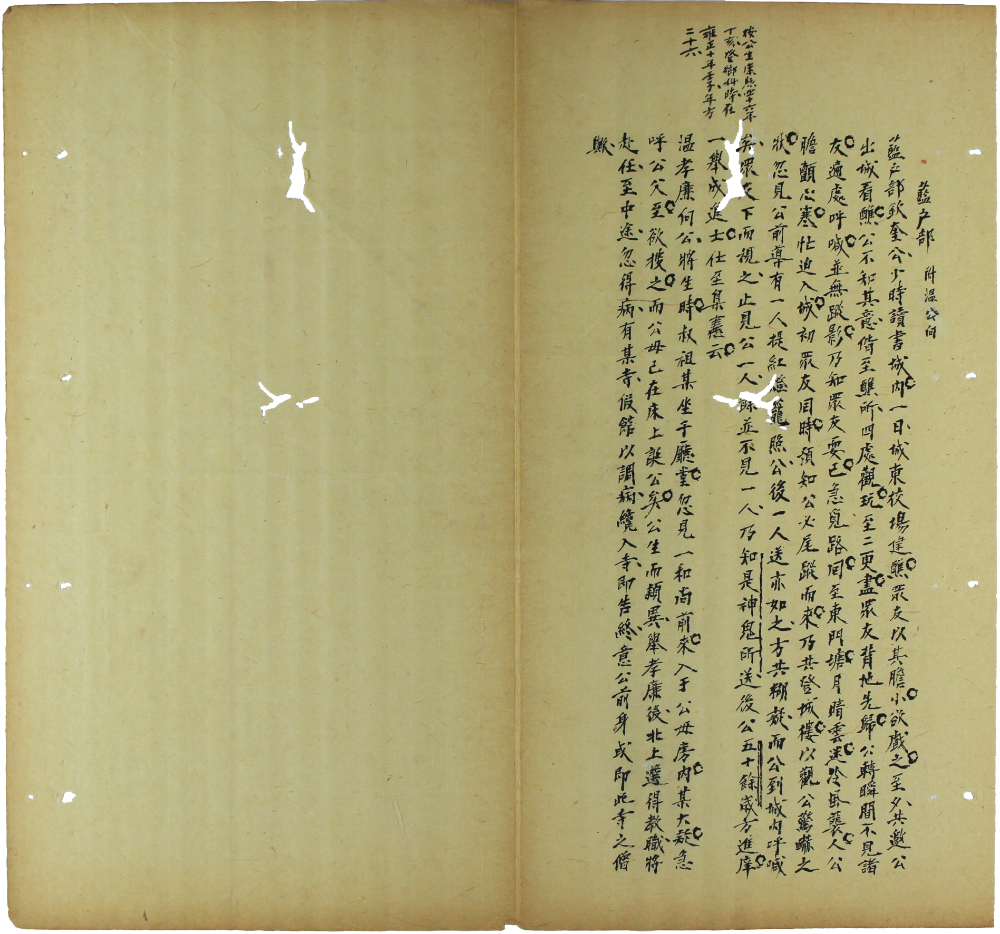 藍戶部 附溫公向
藍戶部欽奎公少時讀書城內一日城東校場建醮眾友以其膽小欲戲之至夕共邀公
出城看醮公不知其意偕至醮所四處觀玩至二更盡眾友背地先歸公轉瞬間不見諸
友遍處呼喊並無蹤影乃知眾友耍己急覓路回至東門塘月暗雲迷冷風襲人公
膽顫心寒忙迫入城初眾友回時預知公必尾蹤而來乃共登城樓以觀公驚嚇之
狀忽見公前導有一人提紅燈籠照公後一人送亦如之方共糊疑而公到城內呼喊
矣眾友下而視之止見公一人餘並不見一人乃知是神鬼所送後公五十餘歲方進庠
一舉成進士仕至臬憲云
溫孝廉向公將生時叔祖某坐于廳堂忽見一和尚前來入于公母房內某大疑急
呼公父至欲搜之而公母已在床上誕公矣公生而穎異舉孝廉後北上選得教職將
赴任至中途忽得病有某寺假館以調病纔入寺即告終意公前身或即此寺之僧
歟
按公生康熙四十六年
丁亥登鄉科時在
雍正十年壬子年方
二十六